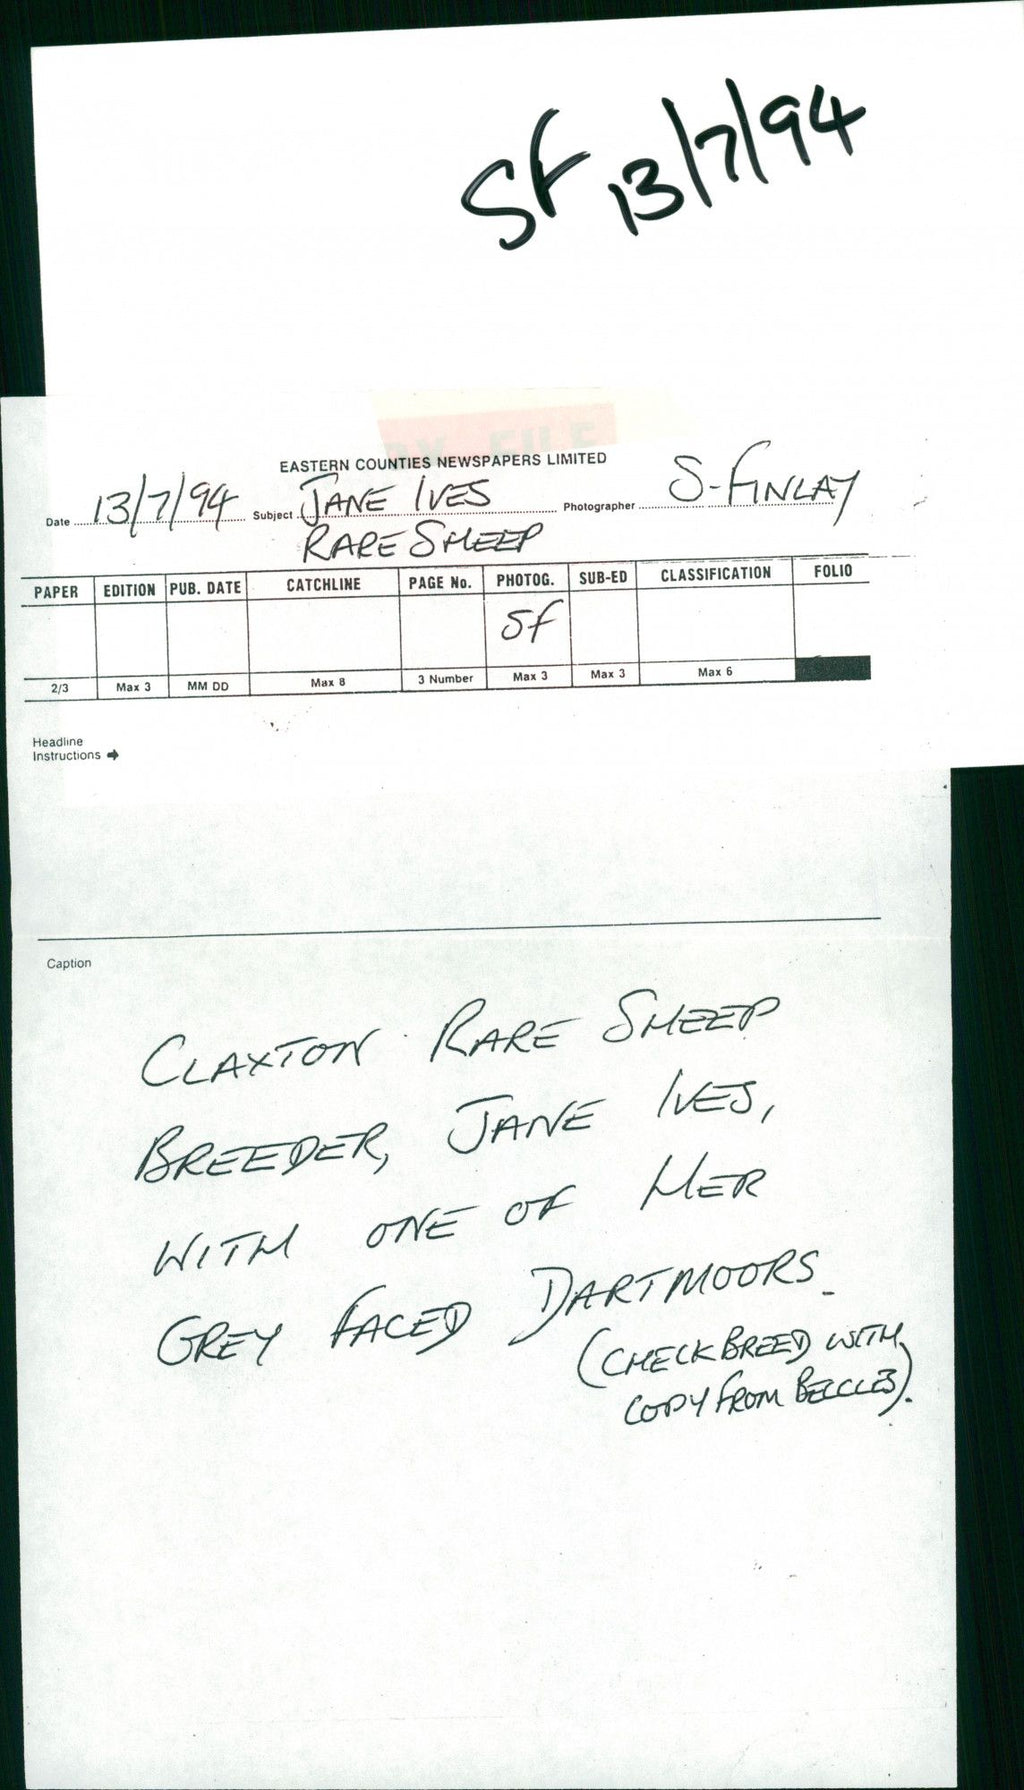 SF 13/7/94
EASTERN COUNTIES NEWSPAPERS LIMITED
Date 13/7/94 Subject JANE IVES Photographer S-FINLAY
RARE SHEEP
PAPER EDITION PUB. DATE CATCHLINE PAGE No. PHOTOG. SUB-ED CLASSIFICATION FOLIO
SF
2/3 Max 3 MM DD Max 8 3 Number Max 3 Max 3 Max 6
Headline
Instructions
Caption
CLAXTON RARE SHEEP
BREEDER, JANE IVES,
WITH ONE OF HER
GREY FACED DARTMOORS.
(CHECK BREED WITH
COPY FROM BECCLES).